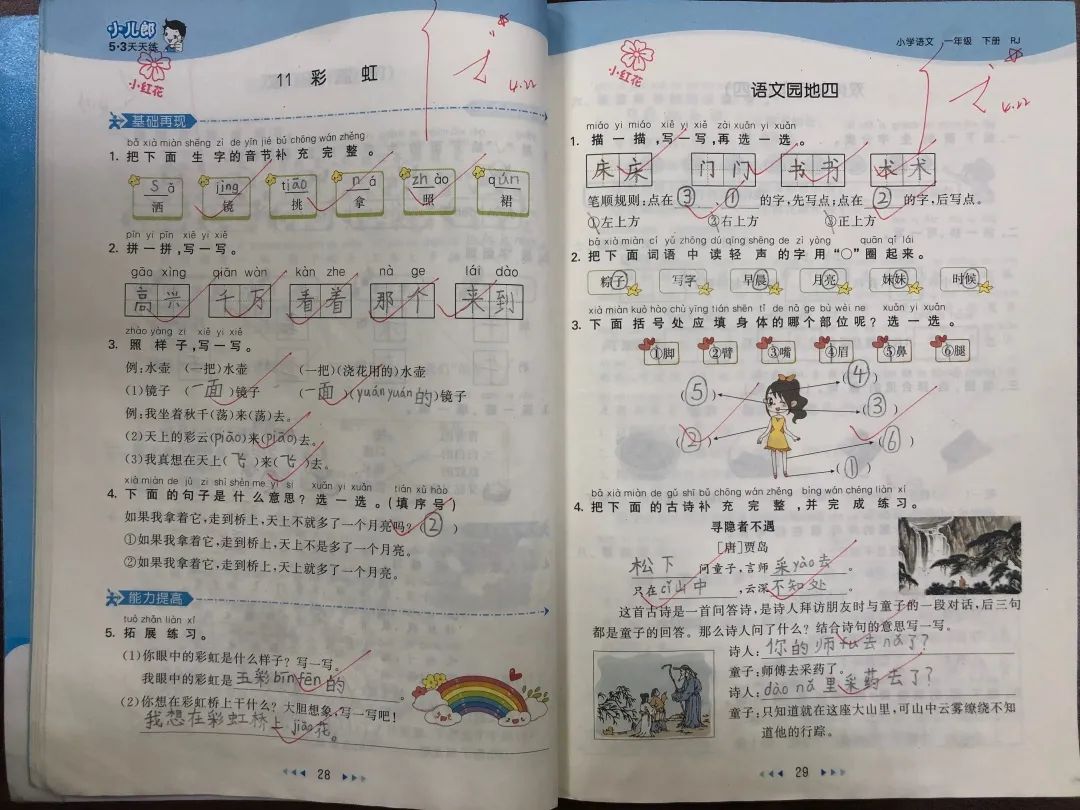 小儿郎
5·3天天练
小红花
11 彩 虹
4.22
基础再现
bǎ xià miàn shēng zì de yīn jié bǔ chōng wán zhěng
1. 把下面生字的音节补充完整。
s ǎ jìng tiāo n á zh ào qún
洒 镜 挑 拿 照 裙
pīn yi pīn xiě yi xiě
2. 拼一拼,写一写。
gāo xìng qiān wàn kàn zhe nà ge lái dào
高兴 千万 看着 那个 来到
zhào yàng zi xiě yi xiě
3. 照样子,写一写。
例:水壶 (一把)水壶 (一把)(浇花用的)水壶
(1)镜子 (一面)镜子 (一面)(yuányuán的)镜子
例:我坐着秋千(荡)来(荡)去。
(2)天上的彩云(piāo)来(piāo)去。
(3)我真想在天上(飞)来(飞)去。
xià miàn de jù zi shì shén me yì si xuǎn yi xuǎn tián xù hào
4. 下面的句子是什么意思?选一选。(填序号)
如果我拿着它,走到桥上,天上不就多了一个月亮吗?(②)
①如果我拿着它,走到桥上,天上不是多了一个月亮。
②如果我拿着它,走到桥上,天上就多了一个月亮。
能力提高
tuò zhǎn liàn xí
5. 拓展练习。
(1)你眼中的彩虹是什么样子?写一写。
我眼中的彩虹是五彩bīnfēn的。
(2)你想在彩虹桥上干什么?大胆想象,写一写吧!
我想在彩虹桥上jiāo花。
28
小学语文 一年级 下册 RJ
小红花
语文园地四
4.22
miáo yi miáo xiě yi xiě zài xuǎn yi xuǎn
1. 描一描,写一写,再选一选。
床床 门门 书书 术术
笔顺规则:点在③、①的字,先写点;点在②的字,后写点。
①左上方 ②右上方 ③正上方
bǎ xià miàn cí yǔ zhōng dú qīng shēng de zì yòng quān qǐ lái
2. 把下面词语中读轻声的字用“○”圈起来。
粽子 写字 早晨 月亮 妹妹 时候
xià miàn kuò hào chù yīng tián shēn tǐ de nǎ ge bù wèi ne xuǎn yi xuǎn
3. 下面括号处应填身体的哪个部位呢?选一选。
①脚 ②臂 ③嘴 ④眉 ⑤鼻 ⑥腿
(⑤) (④)
(③)
(②) (⑥)
(①)
bǎ xià miàn de gǔ shī bǔ chōng wán zhěng bìng wán chéng liàn xí
4. 把下面的古诗补充完整,并完成练习。
寻隐者不遇
[唐]贾岛
松下问童子,言师采yào去。
只在cǐ山中,云深不知处。
这首古诗是一首问答诗,是诗人拜访朋友时与童子的一段对话,后三句
都是童子的回答。那么诗人问了什么?结合诗句的意思写一写。
诗人:你的师fu去nǎ了?
童子:师傅去采药了。
诗人:dào nǎ里采药去了?
童子:只知道就在这座大山里,可山中云雾缭绕不知
道他的行踪。
29